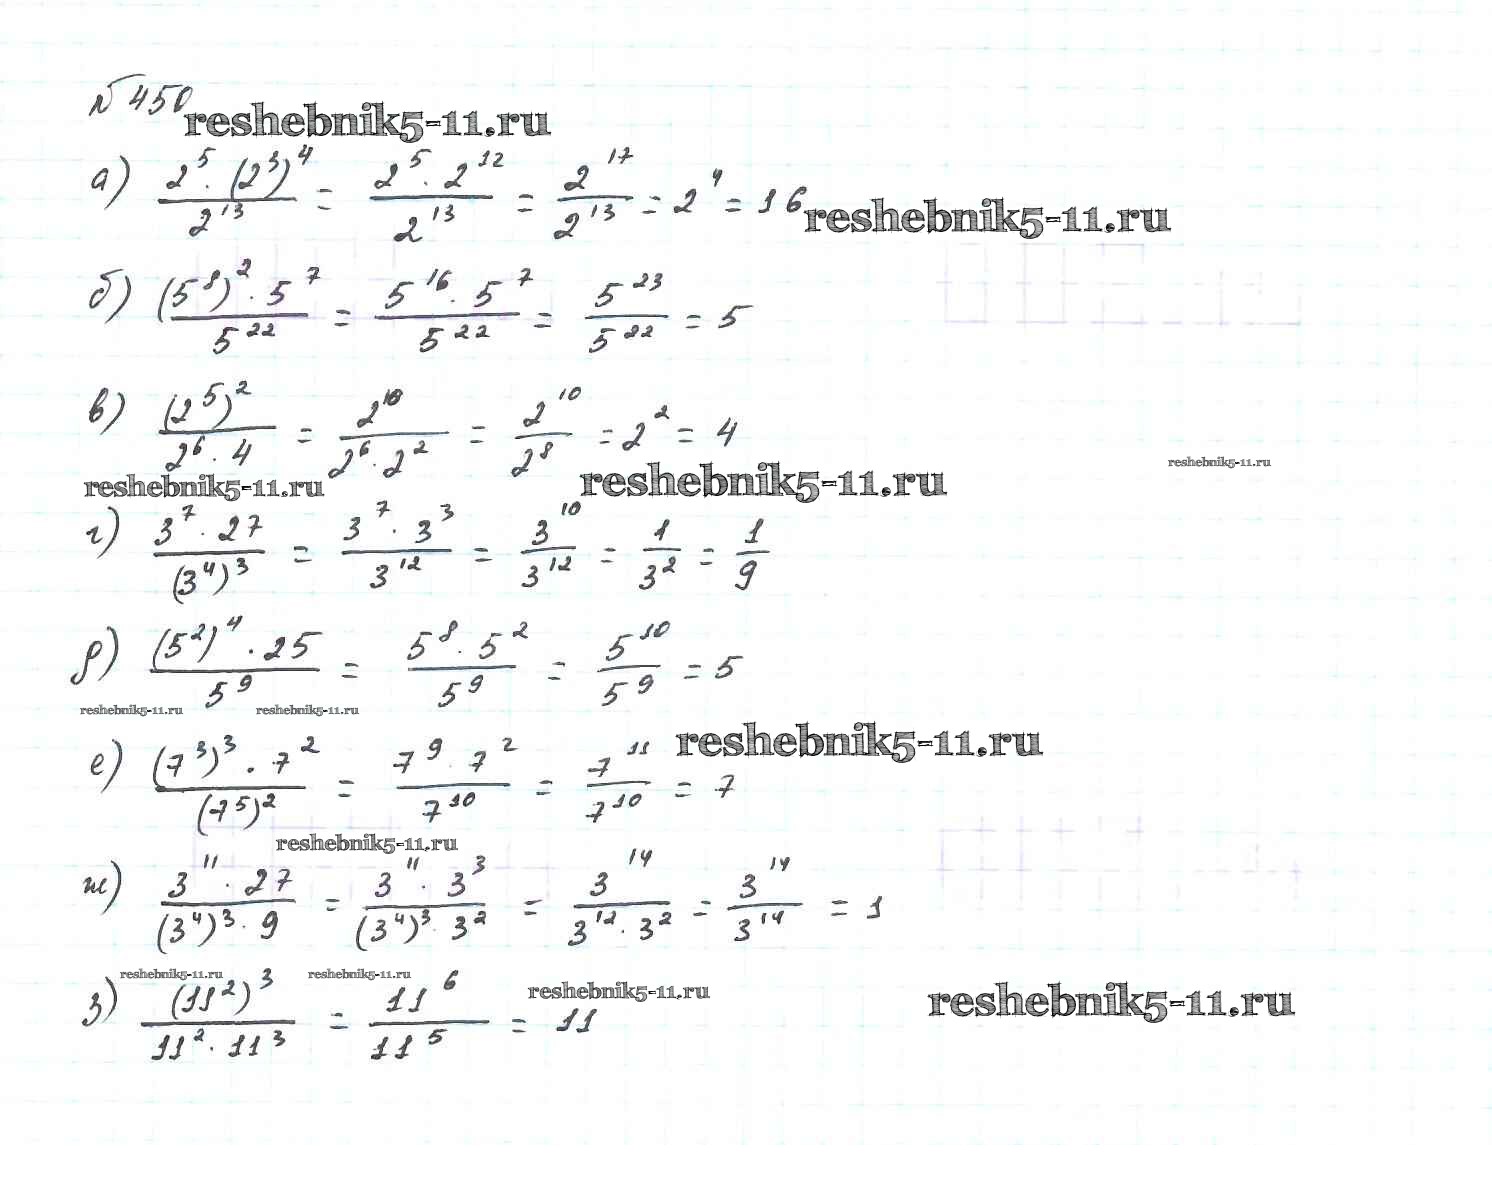 № 450 reshebnik5-11.ru
а) (2^5 · (2^3)^4)/(2^13) = (2^5 · 2^12)/(2^13) = 2^17/2^13 = 2^4 = 16 reshebnik5-11.ru
б) ((5^8)^2 · 5^7)/(5^22) = (5^16 · 5^7)/(5^22) = 5^23/5^22 = 5
в) ((2^5)^2)/(2^6 · 4) = 2^10/(2^6 · 2^2) = 2^10/2^8 = 2^2 = 4
reshebnik5-11.ru reshebnik5-11.ru reshebnik5-11.ru
г) (3^7 · 27)/((3^4)^3) = (3^7 · 3^3)/(3^12) = 3^10/3^12 = 1/3^2 = 1/9
д) ((5^2)^4 · 25)/(5^9) = (5^8 · 5^2)/(5^9) = 5^10/5^9 = 5
reshebnik5-11.ru reshebnik5-11.ru
reshebnik5-11.ru
е) ((7^3)^3 · 7^2)/((7^5)^2) = (7^9 · 7^2)/(7^10) = 7^11/7^10 = 7
reshebnik5-11.ru
ж) (3^11 · 27)/((3^4)^3 · 9) = (3^11 · 3^3)/((3^4)^3 · 3^2) = 3^14/(3^12 · 3^2) = 3^14/3^14 = 1
reshebnik5-11.ru reshebnik5-11.ru reshebnik5-11.ru reshebnik5-11.ru
з) ((11^2)^3)/(11^2 · 11^3) = 11^6/11^5 = 11